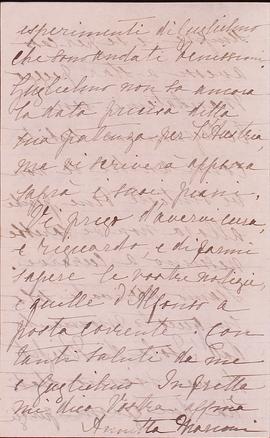 esperimenti di Guglielmo
che sono andati benissimo.
Guglielmo non sa ancora
la data precisa della
sua partenza per l'Austria,
ma vi scriverà appena
saprà i suoi piani.
Vi prego d'avervi cura,
e riguardo, e di farmi
sapere le vostre notizie,
e quelle d'Alfonso a
posta corrente. Con
tanti saluti da me
e Guglielmo. In fretta
mi dico Vostra affma
Annetta Marconi